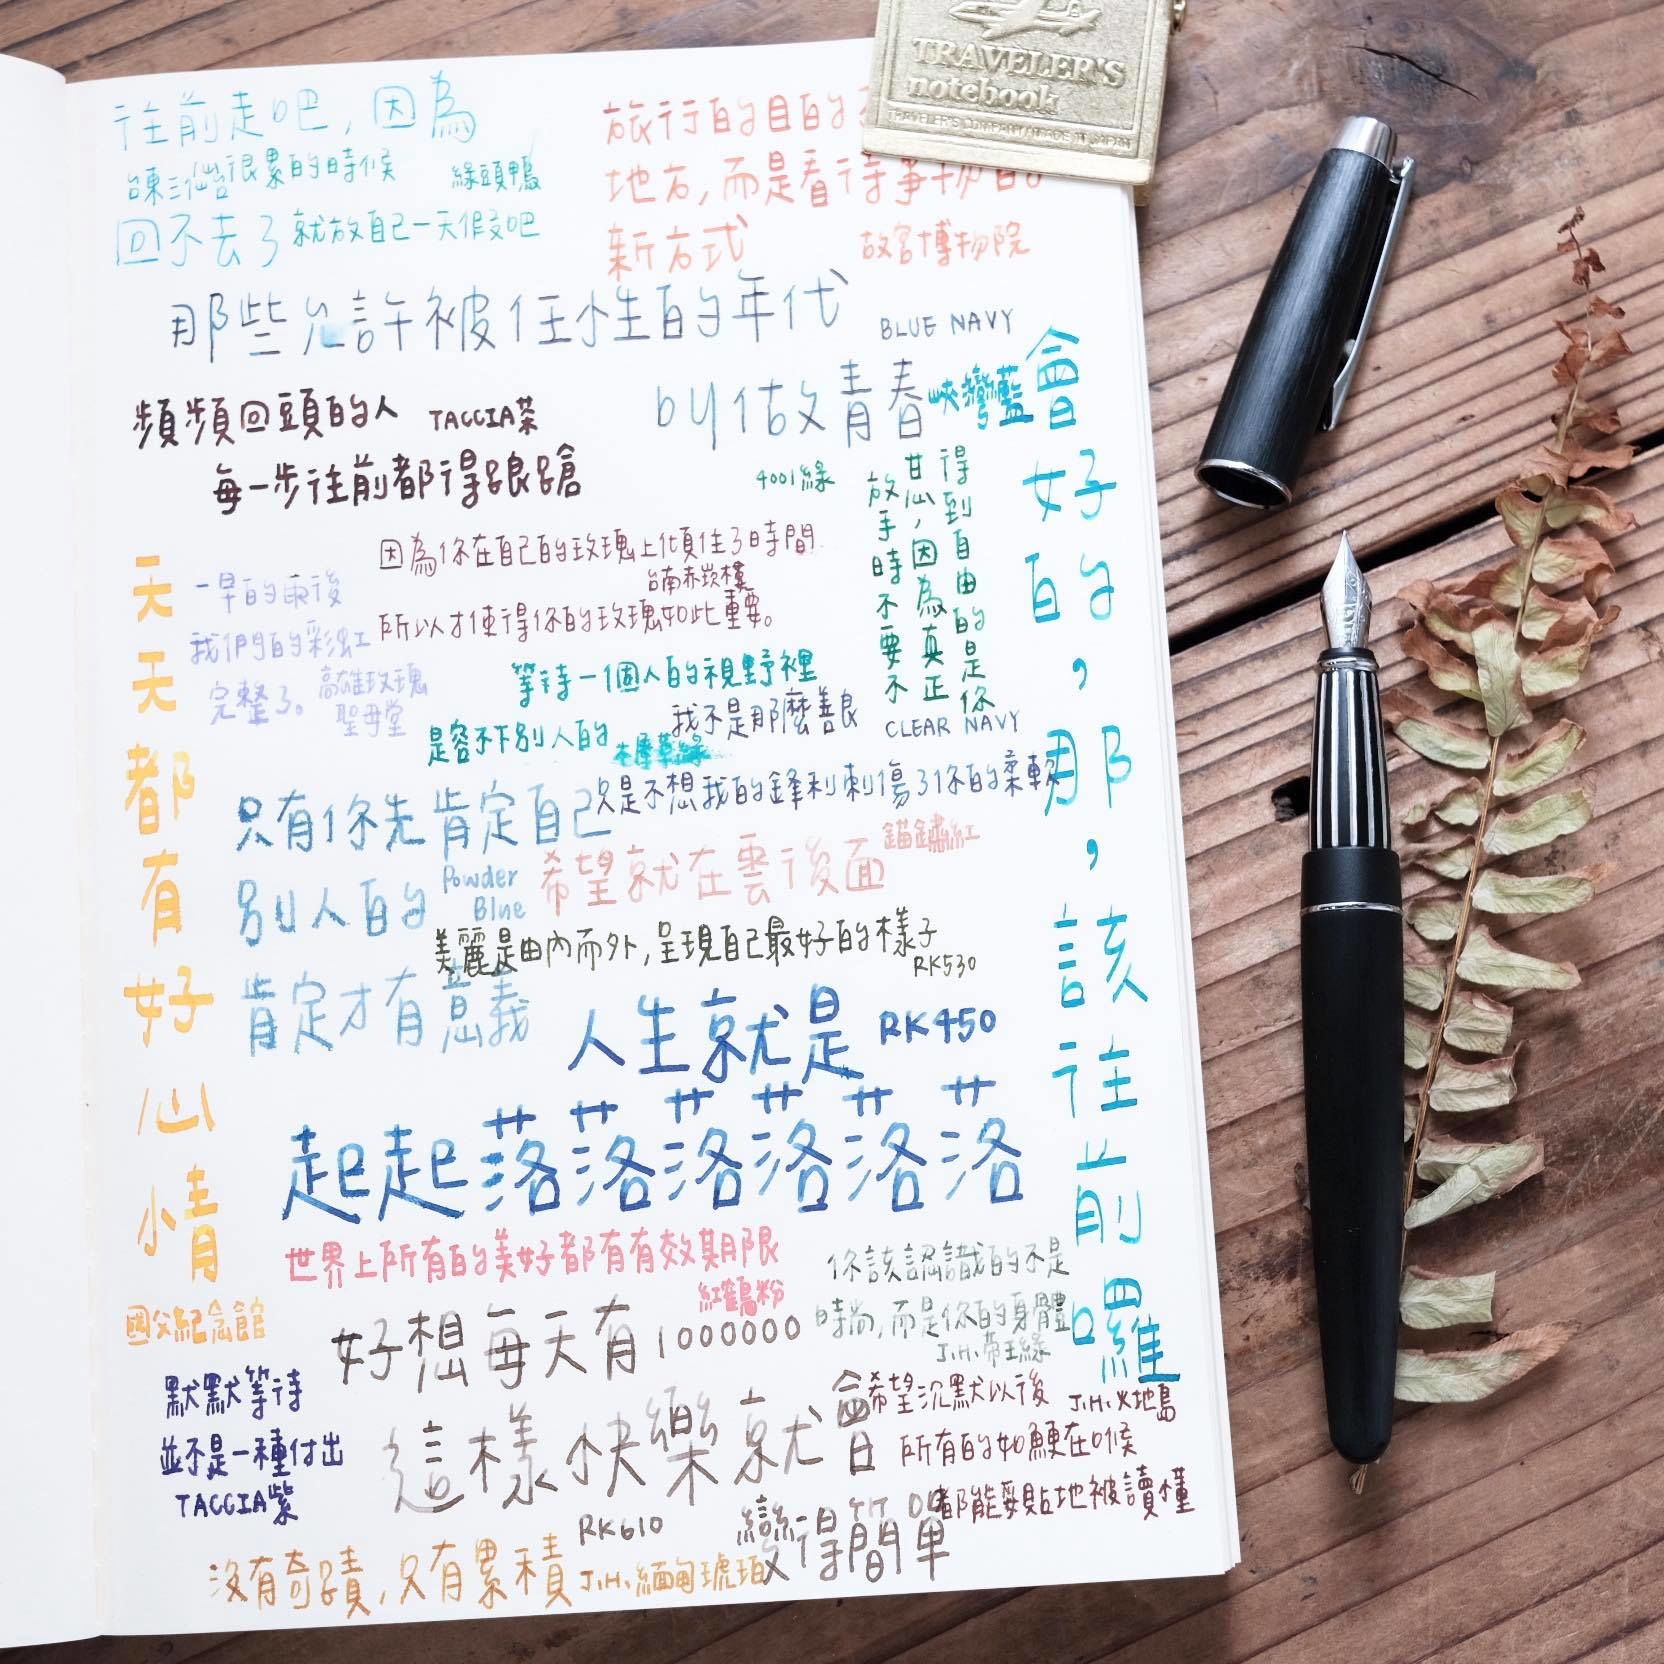 TRAVELER'S
notebook
TRAVELER'S COMPANY MADE IN JAPAN
往前走吧，因為
回不去了
台東三仙台
很累的時候
就放自己一天假吧
綠頭鴨
旅行的目的
地方，而是看待事物的
新方式
故宮博物院
那些允許被任性的年代
叫做青春
BLUE NAVY
峽灣藍
會好的，那，該往前囉
頻頻回頭的人
每一步往前都得踉蹌
TACCIA茶
4001綠
得到自由的是你
甘心，因為真正
放手時不要不
因為你在自己的玫瑰上傾住了時間
所以才使得你的玫瑰如此重要。
台南赤崁樓
天天都有好心情
國父紀念館
一早的雨後
我們的彩虹
完整了。
高雄玫瑰
聖母堂
等待一個人的視野裡
是容不下別人的
我不是那麼善良
只是不想我的鋒利刺傷了你的柔軟
CLEAR NAVY
只有你先肯定自己
別人的
肯定才有意義
Powder
Blue
希望就在雲後面
錨鏽紅
美麗是由內而外，呈現自己最好的樣子
RK530
人生就是
起起落落落落落落
RK450
世界上所有的美好都有有效期限
紅鶴粉
你該認識的不是
時尚，而是你的身體
J.H.帝王綠
好想每天有1000000
這樣快樂就會
變得簡單
RK610
默默等待
並不是一種付出
TACCIA紫
希望沉默以後
所有的如鯁在喉
都能妥貼地被讀懂
J.H.火地島
沒有奇蹟，只有累積
J.H.緬甸琥珀